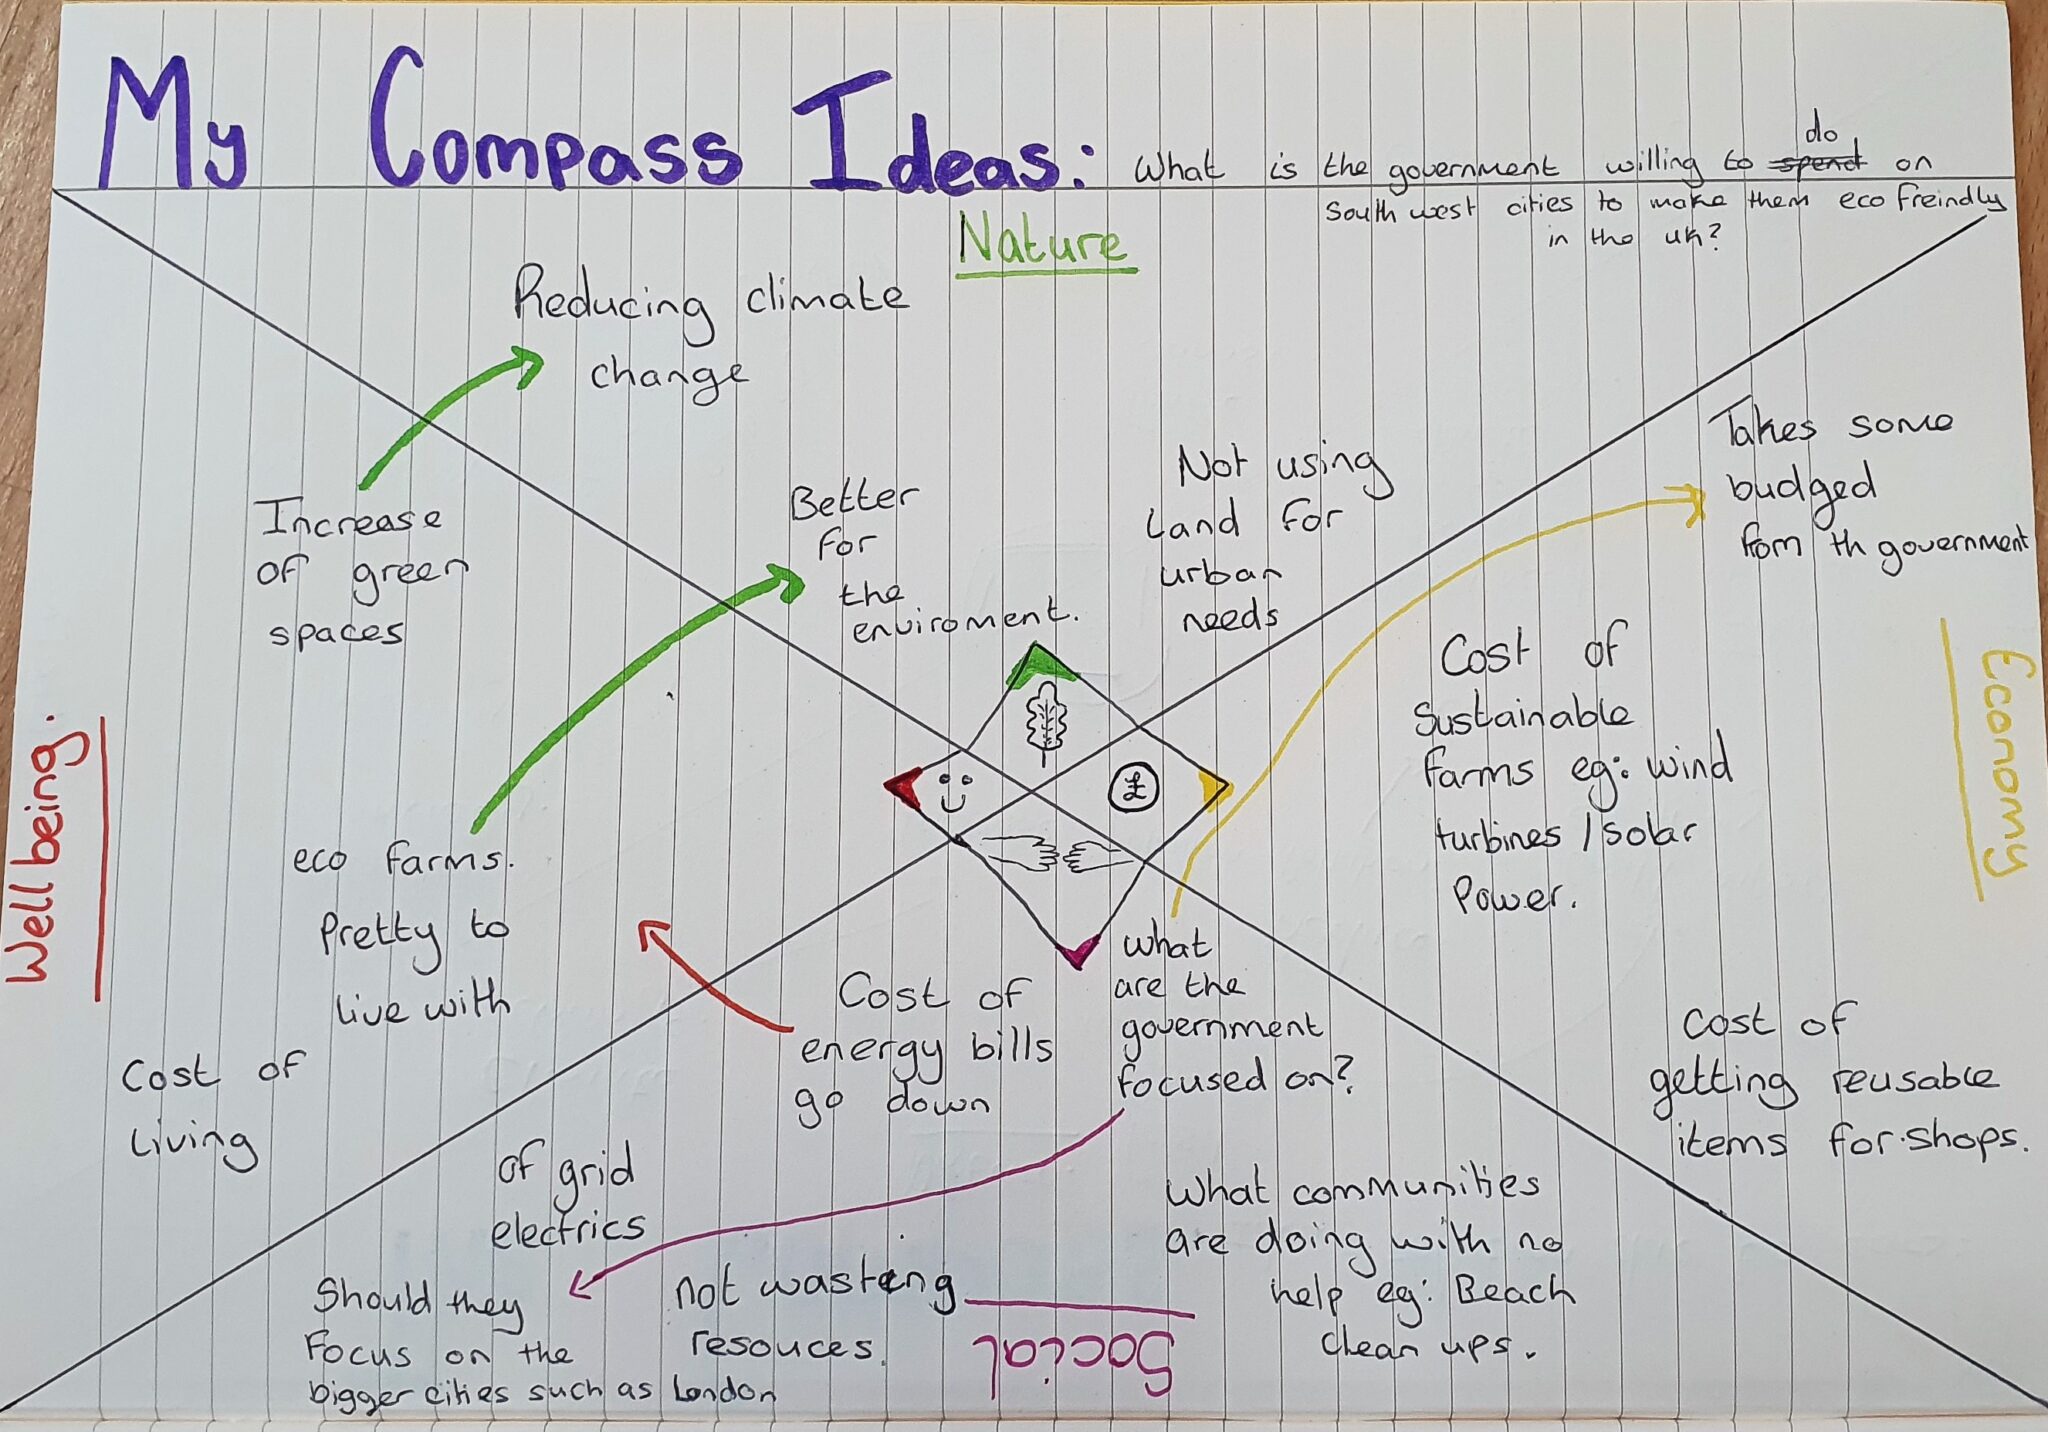 My Compass Ideas: What is the government willing to spend do on
South west cities to make them eco freindly
in the uk?
Nature
Reducing climate
change
Better
for
the
enviroment.
Not using
land for
urban
needs
Takes some
budged
from th government
Cost of
Sustainable
farms eg: wind
turbines / solar
Power.
Economy
Cost of
getting reusable
items for shops.
Increase
of green
spaces
eco farms.
Pretty to
live with
Well being.
Cost of
living
£
Cost of
energy bills
go down
What
are the
government
focused on?
of grid
electrics
Should they
Focus on the
bigger cities such as London
not wasting
resouces.
Social
What communities
are doing with no
help eg: Beach
clean ups.